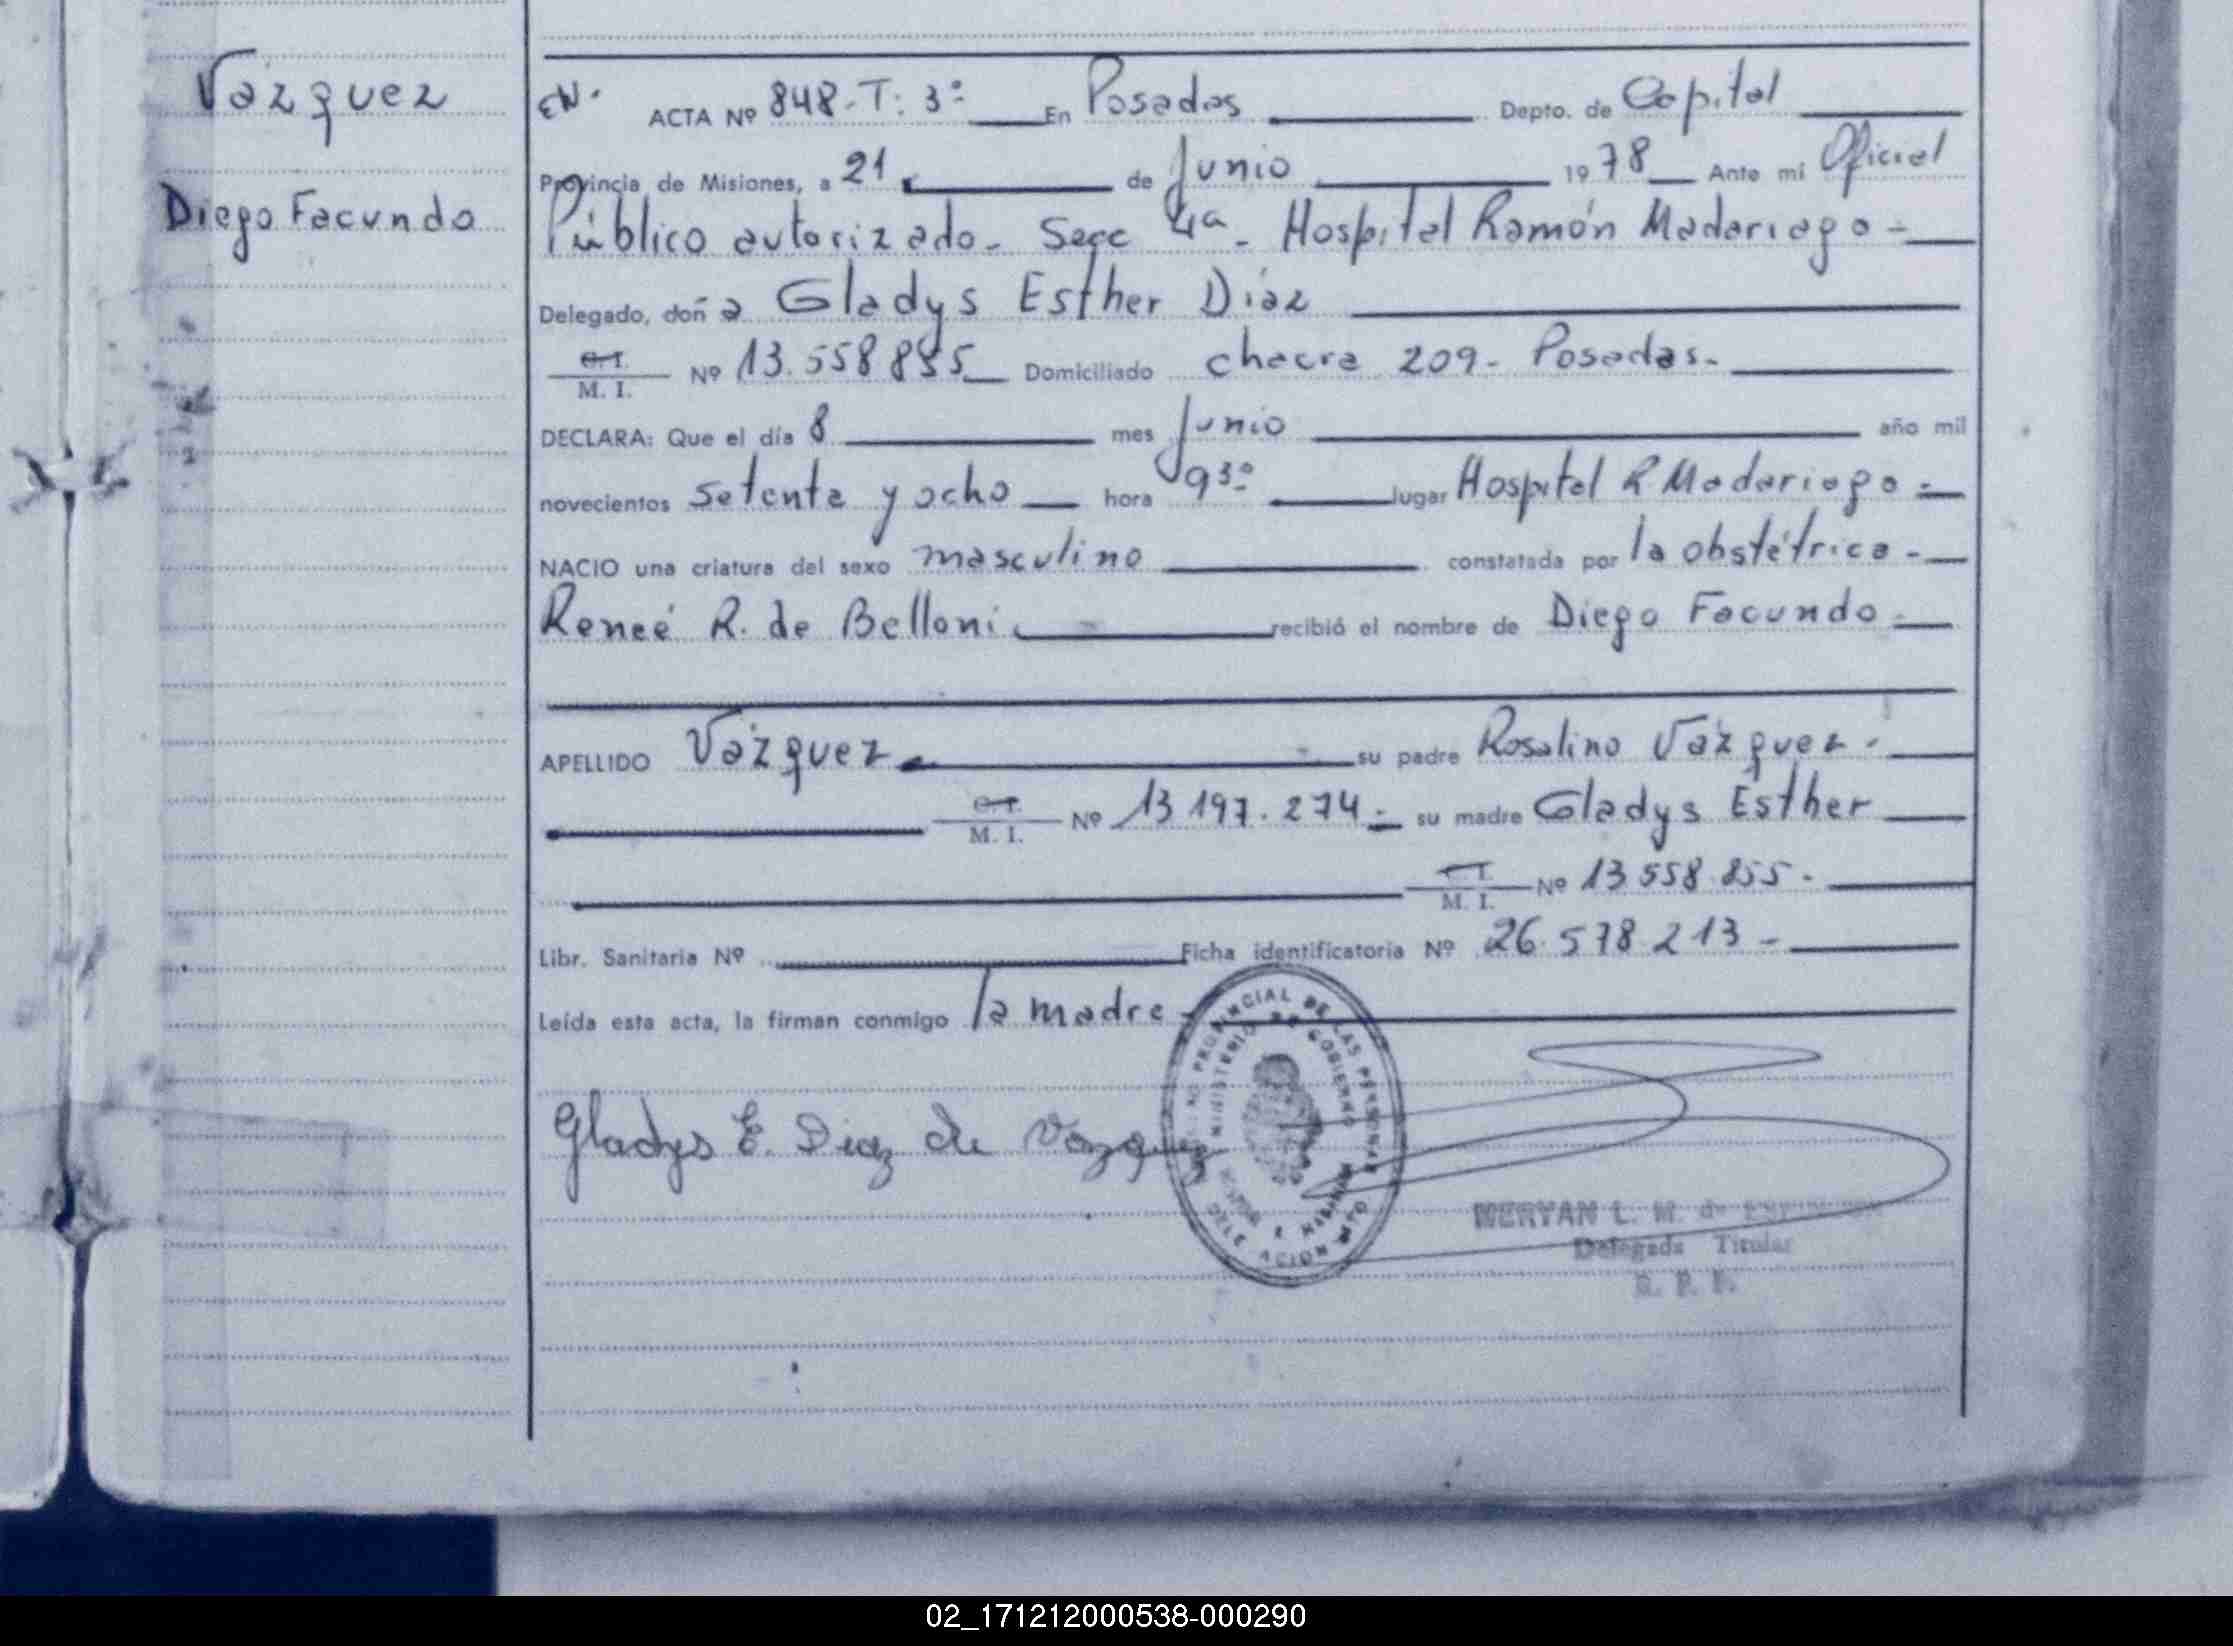 Vázquez
Diego Facundo
EN.
ACTA Nº 848-T: 3º En Posadas Depto. de Capital
Provincia de Misiones, a 21 de Junio 1978 Ante mi Oficial
Público autorizado - Secc 4a - Hospital Ramón Madariaga -
Delegado, doña Gladys Esther Díaz
C. I. / M. I. Nº 13.558.855 Domiciliado chacra 209 - Posadas -
DECLARA: Que el día 8 mes Junio año mil
novecientos setenta y ocho hora 9 30 lugar Hospital R Madariaga -
NACIO una criatura del sexo masculino constatada por la obstétrica -
Reneé R. de Belloni recibió el nombre de Diego Facundo -
APELLIDO Vázquez su padre Rosalino Vázquez -
C. I. / M. I. Nº 13 197.274 - su madre Gladys Esther
C. I. / M. I. Nº 13 558 855 -
Libr. Sanitaria Nº Ficha identificatoria Nº 26.578.213 -
Leída esta acta, la firman conmigo la madre -
Gladys E. Diaz de Vazquez
PROVINCIAL DE LAS PERSONAS
MINISTERIO DE GOBIERNO
MERYAN L. M. de
Delegada Titular
R. P. P.
02_171212000538-000290